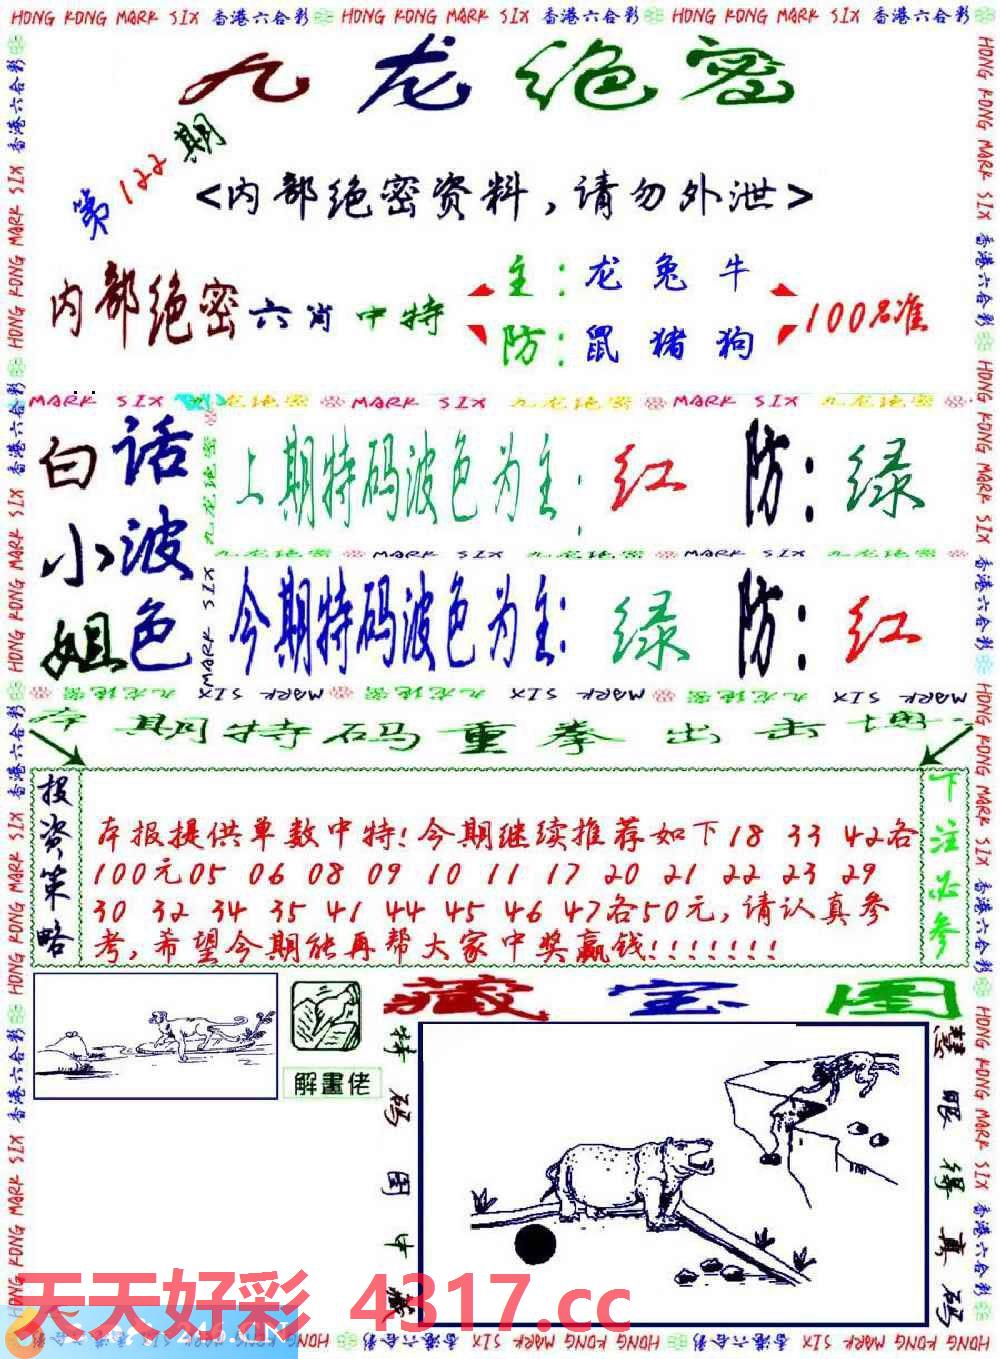 HONG KONG MARK SIX 香港六合彩 HONG KONG MARK SIX 香港六合彩 HONG KONG MARK SIX 香港六合彩
九龙绝密
第122期
<内部绝密资料,请勿外泄>
内部绝密六肖中特
主:龙兔牛
防:鼠猪狗
100%准
MARK SIX 九龙绝密 MARK SIX 九龙绝密 MARK SIX 九龙绝密
白小姐
话波色
上期特码波色为主:红 防:绿
九龙绝密 MARK SIX 九龙绝密 MARK SIX 九龙绝密
今期特码波色为主:绿 防:红
本期特码重拳出击
投资策略
本报提供单数中特!今期继续推荐如下18 33 42各
100元05 06 08 09 10 11 17 20 21 22 23 29
30 32 34 35 41 44 45 46 47各50元,请认真参
考,希望今期能再帮大家中奖赢钱!!!!!!!
下注必参
解畫佬
藏宝图
特码图中藏
慧眼得真码
天天好彩 4317.cc
HONG KONG MARK SIX 香港六合彩